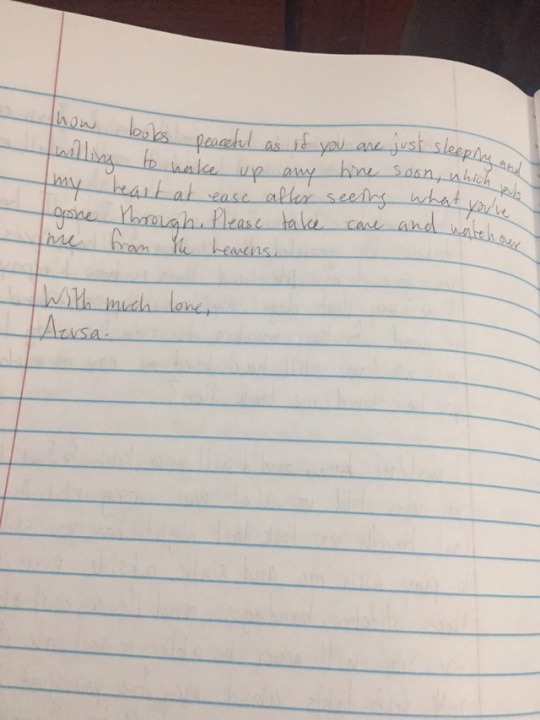 now looks peaceful as if you are just sleeping and
willing to wake up any time soon, which puts
my heart at ease after seeing what you've
gone through. Please take care and watch over
me from the heavens.
With much love,
Azusa.